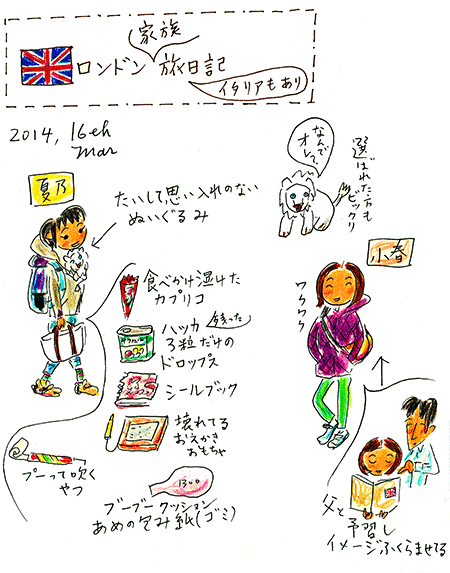 家族
ロンドン 旅日記
イタリアもあり
2014, 16th
mar
夏乃
たいして思い入れのない
ぬいぐるみ
なんで
オレ?
選ばれた方も
ビックリ
小春
ワクワク
食べかけ湿けた
カプリコ
ハッカ 残った
3粒だけの
ドロップス
シールブック
壊れてる
おえかき
おもちゃ
プーって吹く
やつ
ブーブークッション
あめの包み紙(ゴミ)
父と
予習し
イメージふくらませてる